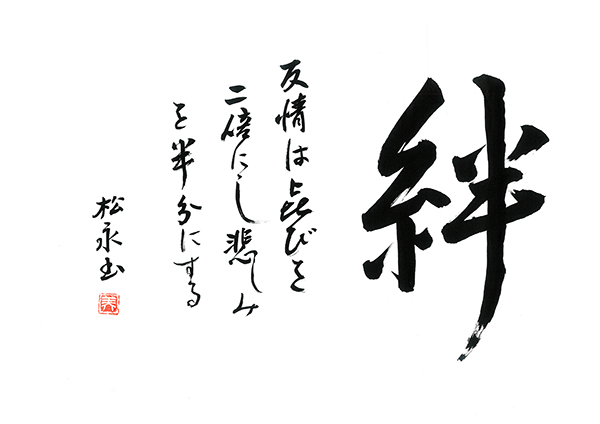 絆
友情は喜びを
二倍にし悲しみ
を半分にする
松永書